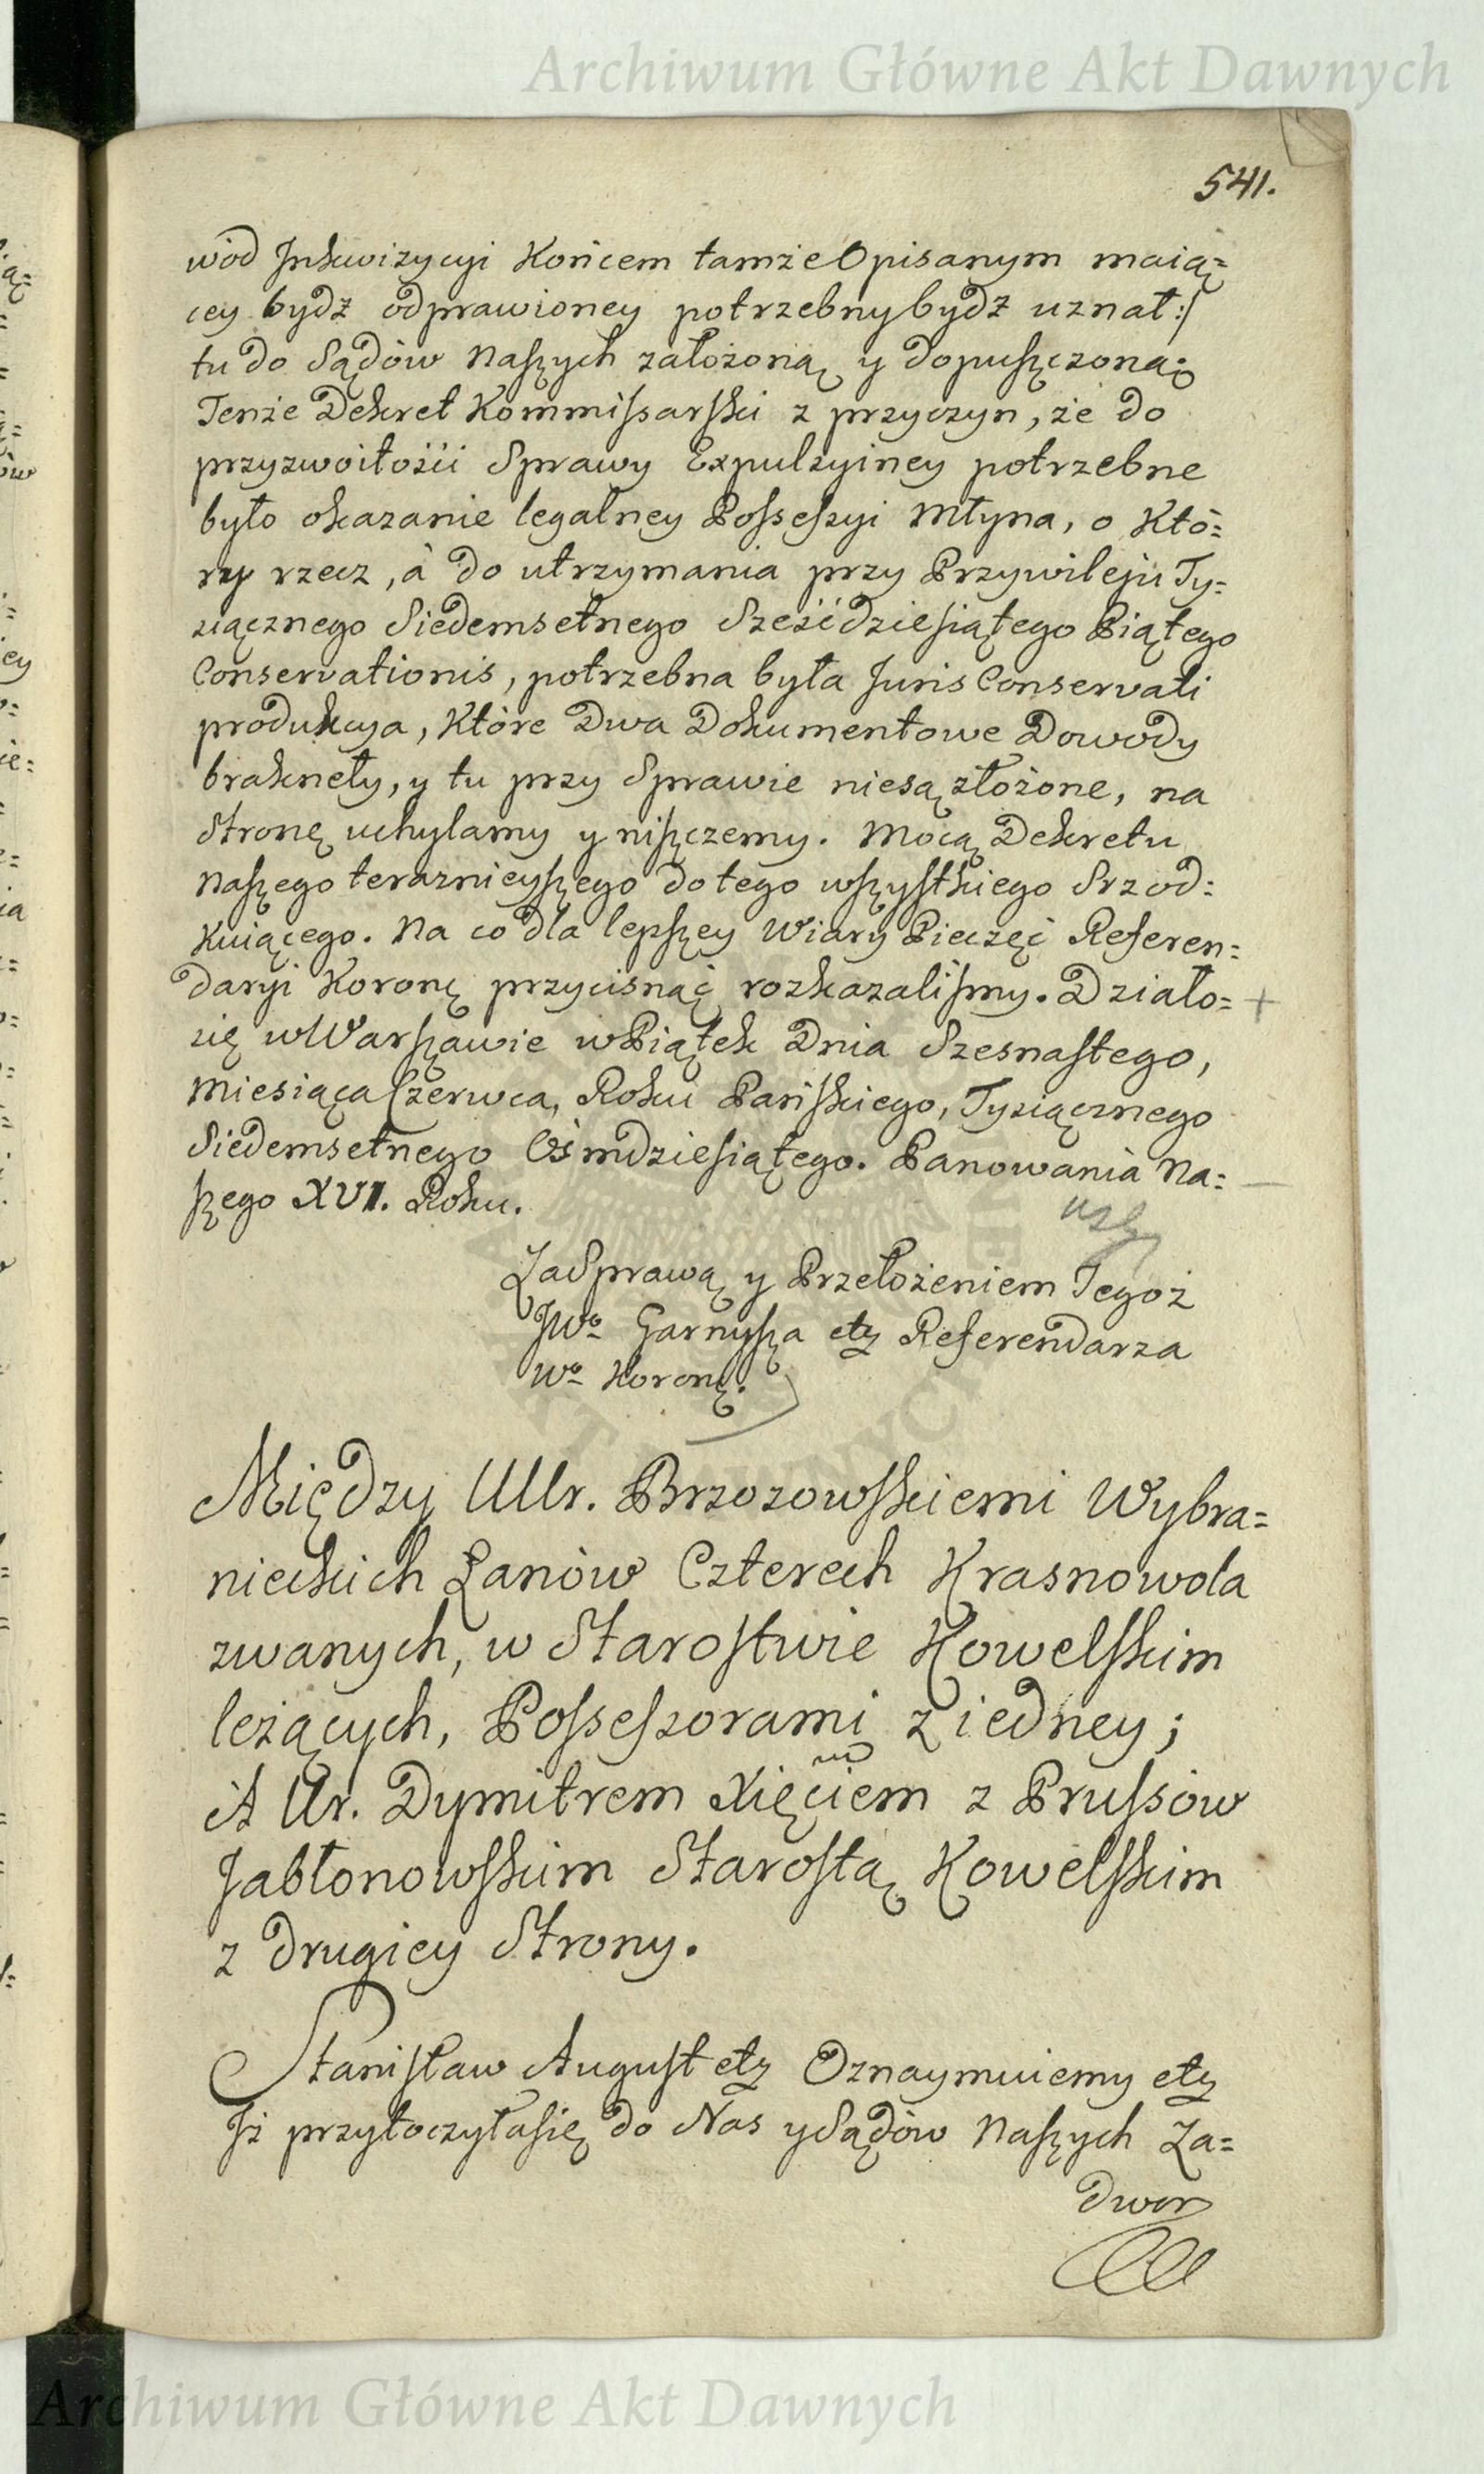 Archiwum Główne Akt Dawnych
541.
wód Inkwizycyi Końcem tamże Opisanym maią=
cey bydź odprawioney potrzebny bydź uznał:/
tu do Sądów Naszych założoną y dopuszczoną;
Tenże Dekret Kommissarski z przyczyn, że do
przyzwoitości Sprawy Expulzyiney potrzebne
było okazanie legalney Possessyi Młyna, o Któ=
ry rzecz, à do utrzymania przy Przywileju Ty=
siącznego Siedemsetnego Sześćdziesiątego Piątego
Conservationis, potrzebna była Juris Conservati
produkcya, Które Dwa Dokumentowe Dowody
braknęły, y tu przy Sprawie niesą złożone, na
Stronę uchylamy y niszczemy. Mocą Dekretu
Naszego terazniejszego do tego wszystkiego Srzod=
kuiącego. Na co dla lepszey Wiary Pieczęć Referen=
daryi Koronę przycisnąć rozkazaliśmy. Działo= +
się w Warszawie w Piątek Dnia Szesnastego,
Miesiąca Czerwca, Roku Pańskiego, Tysiącznego
Siedemsetnego Osmdziesiątego. Panowania Na=
szego XVI. Roku.
Za Sprawą y Przełożeniem Tegoż
JWo Garnysza etz Referendarza
Wo Koronę.
Między UUr. Brzozowskiemi Wybra=
nieckich Łanów Czterech Krasnowola
zwanych, w Starostwie Kowelskim
leżących, Possessorami z iedney;
A Ur. Dymitrem Xięciem z Prussów
Jabłonowskim Starostą Kowelskim
z drugiey Strony.
Stanisław August etz Oznaymuiemy etz
Iż przytoczyła się do Nas y Sądów Naszych Za=
dwor
Archiwum Główne Akt Dawnych